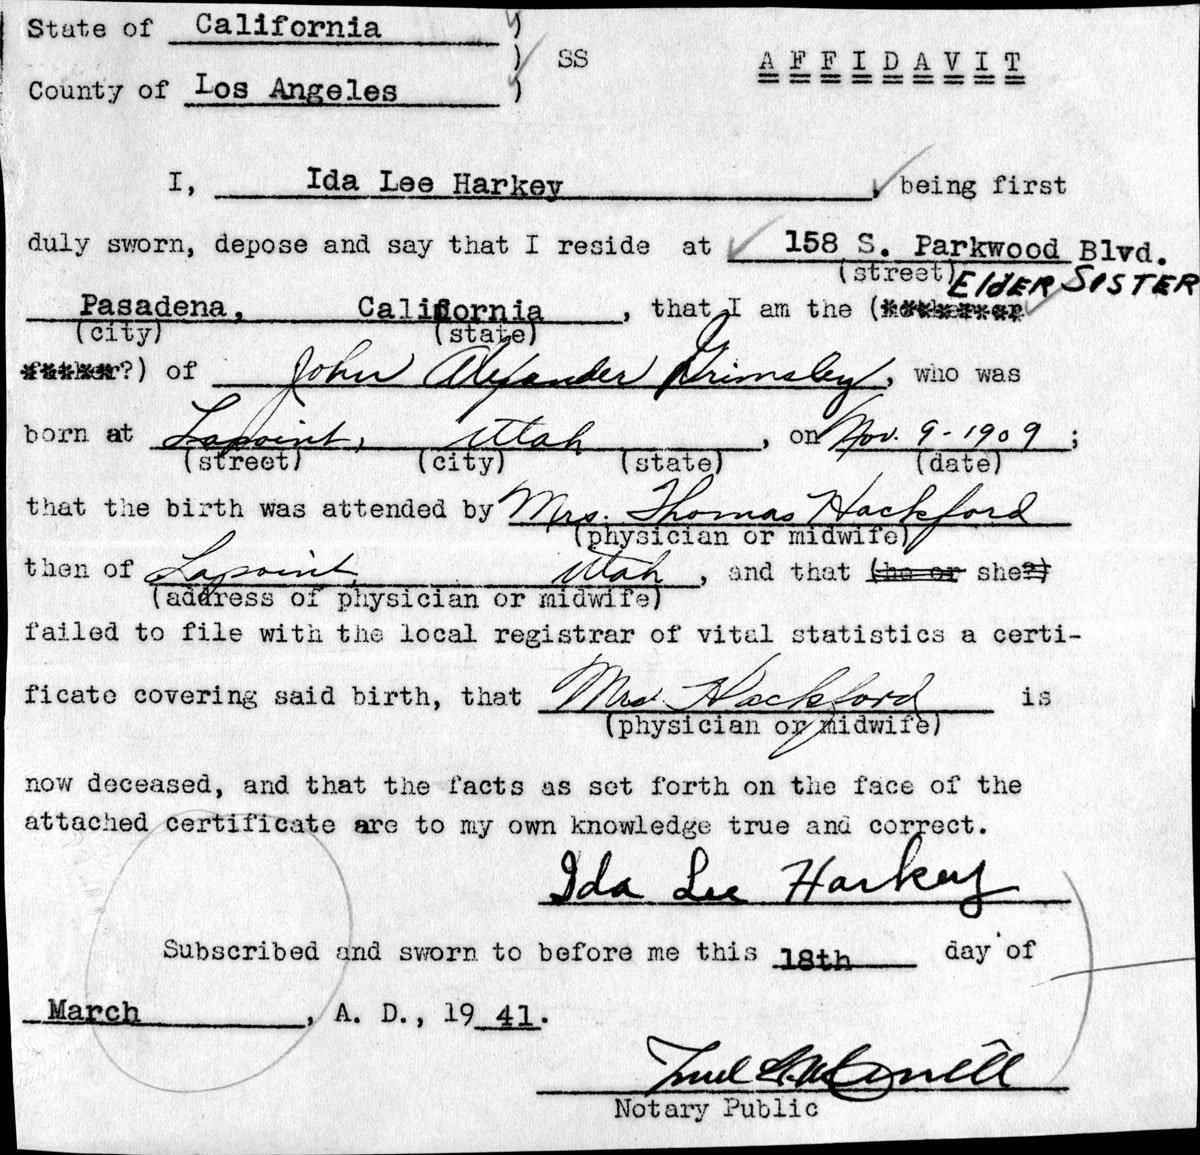 State of California )
) SS A F F I D A V I T
County of Los Angeles )
I, Ida Lee Harkey, being first
duly sworn, depose and say that I reside at 158 S. Parkwood Blvd.
(street) ElDER SISTER
Pasadena, California, that I am the (
(city) (state)
?) of John Alexander Grimsley, who was
born at Lapoint, Utah, on Nov. 9-1909;
(street) (city) (state) (date)
that the birth was attended by Mrs. Thomas Hackford
(physician or midwife)
then of Lapoint, Utah, and that (he or she?)
(address of physician or midwife)
failed to file with the local registrar of vital statistics a certi-
ficate covering said birth, that Mrs. Hackford is
(physician or midwife)
now deceased, and that the facts as set forth on the face of the
attached certificate are to my own knowledge true and correct.
Ida Lee Harkey
Subscribed and sworn to before me this 18th day of
March, A. D., 19 41.
Notary Public